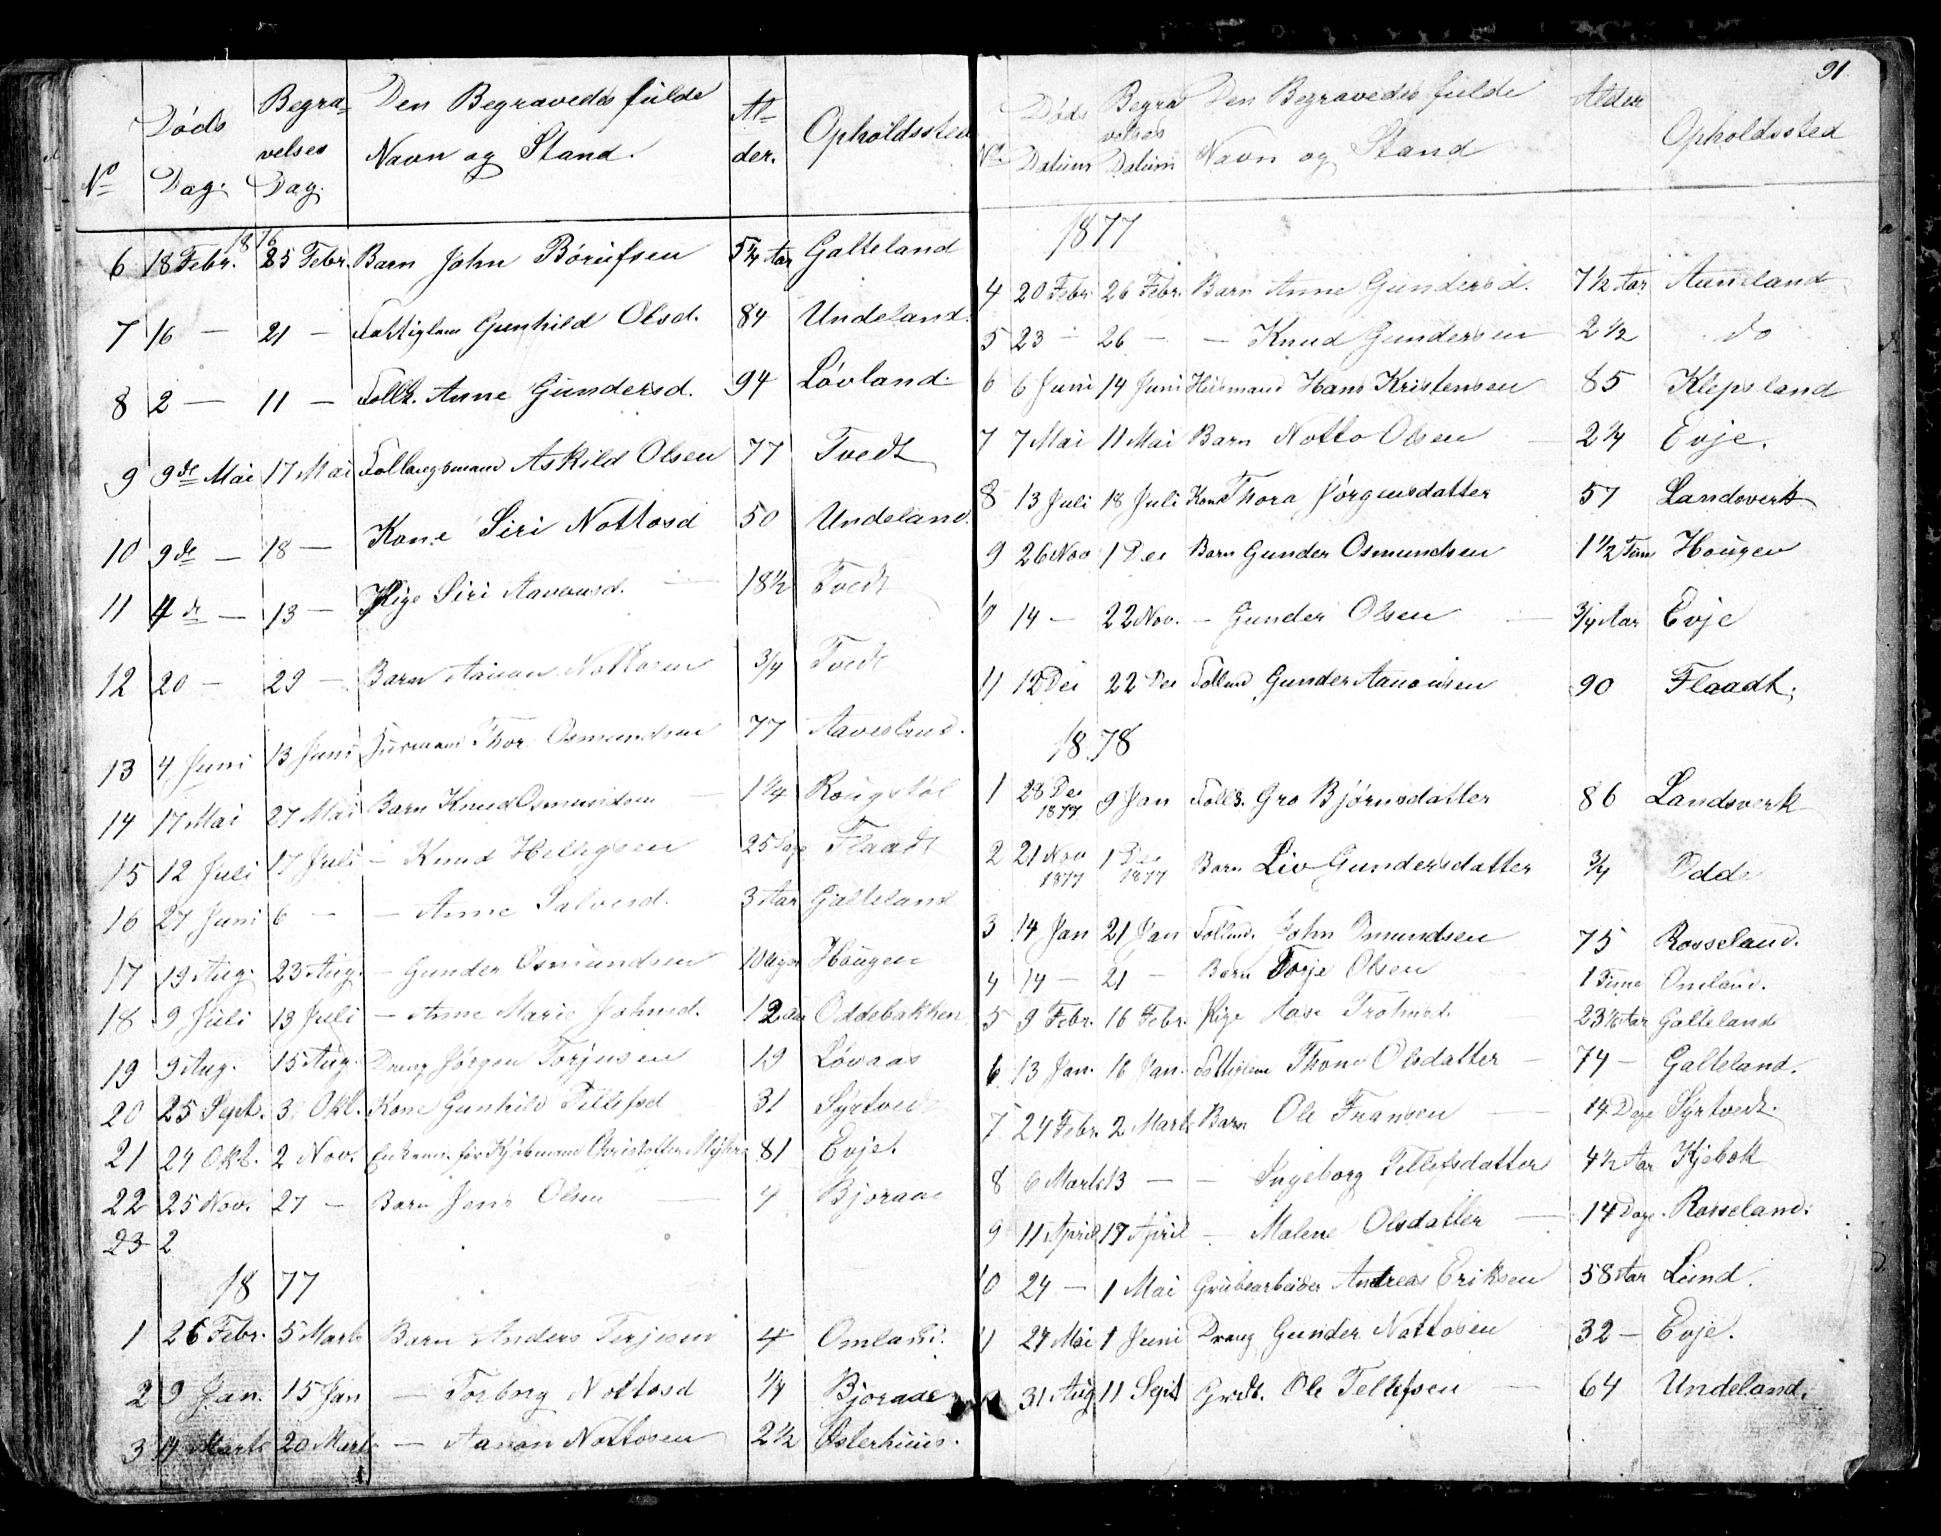 No Døds Dag. Begravelses Dag. Den Begravedes fulde Navn og Stand. Alder. Opholdssted
1876
6 18 Febr. 25 Febr. Barn John Børufsen 5 1/4 Aar Galteland
7 16 — 21 — Fattiglem Gunhild Olsd. 84 Undeland.
8 2 — 11 — Follk. Anne Gundersd. 94 Løvland.
9 9de Mai 17 Mai Follaugsmand Askild Olsen 77 Tvedt
10 9de — 18 — Kone Siri Nottosd 50 Undeland.
11 4de — 13 — Pige Siri Aanonsd. — 18 1/2 Tvedt
12 20 — 29 — Barn Aanon Nottosen 3/4 Tvedt
13 4 Juni 13 Juni Thor Osmundsen 77 Aavestrud.
14 17 Mai 27 Mai Barn Knud Osmundsen — 1 1/4 Rougstøl
15 12 Juli 17 Juli — Knud Hellegsen 25 Dage Flaadt
16 27 Juni 6 — — Anne Salvesd. 3 Aar Galteland
17 19 Aug. 23 Aug. — Gunder Osmundsen 10 Uger Hougen
18 9 Juli 13 Juli — Anne Marie Johnsd. 12 Aar Oddebakken
19 9 Aug. 15 Aug. Dreng Jørgen Torjusen 19 Løvaas
20 25 Sept. 3 Okt. Kone Gunhild Tellefsd 31 Syrtvedt
21 24 Okt. 2 Nov. Enkem. før Kjøbmand Christoffer Myhre 81 Evje.
22 25 Nov. 27 — Barn Jens Olsen — 4 Bjoraae
23 2
1877
1 26 Febr. 5 Marts Barn Anders Terjesen 4 Omland.
2 9 Jan. 15 Jan — Torborg Nottosd 1/4 Bjoraae
3 14 Marts 20 Marts — Aanon Nottosen 2 1/2 Østerhuus.
91
No. Døds Datum Begravelses Datum Den Begravedes fulde Navn og Stand Alder Opholdssted
1877
4 20 Febr 26 Febr. Barn Anne Gundersd. 7 1/2 Aar Auneland
5 23 — 26 — — Knud Gundersen 2 1/2 do
6 6 Juni 14 Juni Husmand Hans Kristensen 85 Klepsland
7 7 Mai 11 Mai Barn Notto Olsen — 2 1/4 Evje.
8 13 Juli 18 Juli Kone Thora Jørgensdatter 57 Landsverk
9 26 Nov 1 Dec Barn Gunder Osmundsen 1 1/2 Time Hougen
10 14 — 22 Nov. — Gunder Olsen — 3/4 Aar Evje
11 12 Dec 22 Dec Follmd Gunder Aanonsen 90 Flaadt.
1878
1 28 Dec 1877 9 Jan Follk. Gro Bjørnsdatter 86 Landsverk
2 21 Nov 1877 1 Dec 1877 Barn Liv Gundersdatter 3/4 Odde
3 14 Jan 21 Jan Follmd. John Omundsen 75 Rosseland.
4 14 — 21 — Barn Torje Olsen — 1 Time Omland.
5 9 Febr. 16 Febr. Pige Aase — 23 1/2 Aar Galteland
6 13 Jan. 16 Jan. Fattiglem Thone Olsdatter — 74 — Galteland.
7 24 Febr. 2 Marts Barn Ole Fransen — 14 Dage Syrtvedt.
8 6 Marts 13 — — Ingeborg Tellefsdatter 4 1/2 Aar Kjebok
9 11 April 17 April — Malene Olsdatter — 14 Dage. Rosseland.
10 24 — 1 Mai Grubearbeider Andreas Eriksen 58 Aar Lund.
11 24 Mai 1 Juni Dreng Gunder Nottosen 32 — Evje.
31 Aug 11 Sept Grdb. Ole Tellefsen — 64 Undeland.